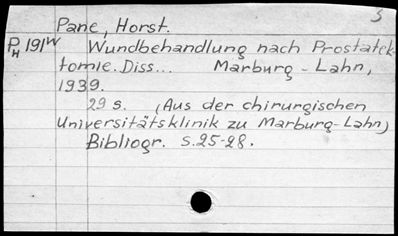 S
Pane, Horst.
PH 191W Wundbehandlung nach Prostatek-
tomie. Diss... Marburg-Lahn,
1939.
29 s. (Aus der chirurgischen
Universitätsklinik zu Marburg-Lahn)
Bibliogr. s.25-28.